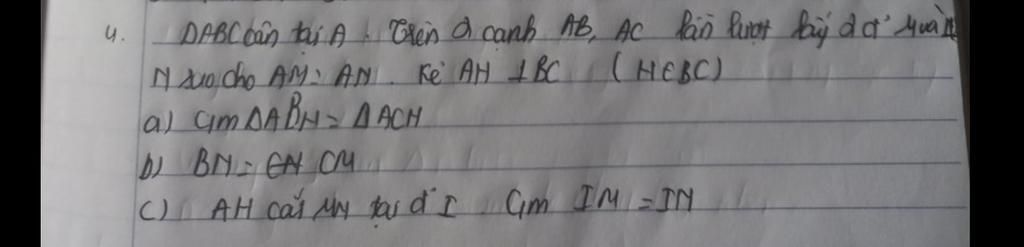 4. ΔABC cân tại A. Trên 2 cạnh AB, AC lần lượt lấy 2 đ' M và
N sao cho AM = AN. Kẻ AH ⊥ BC (H∈BC)
a) Cm ΔABH = ΔACH
b) BN = CM
c) AH cắt MN tại đ' I. Cm IM = IN